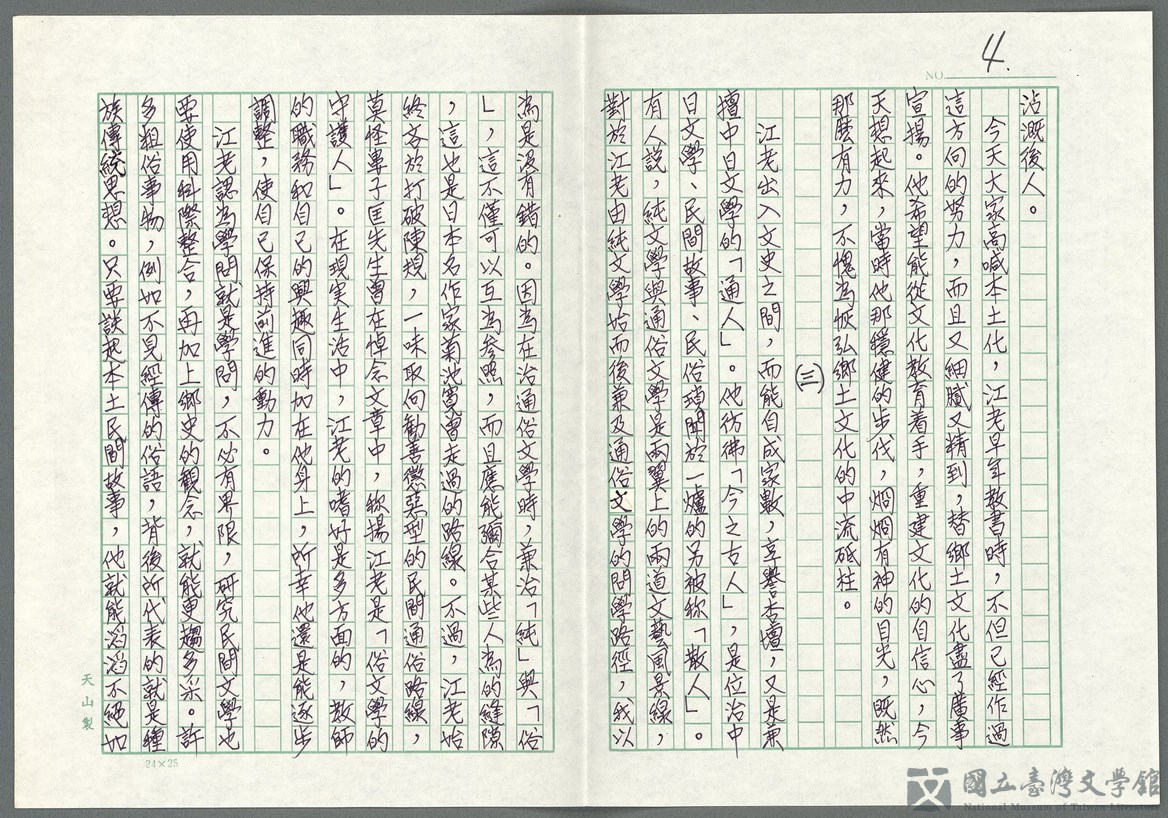 4.
NO.
沾溉後人。
今天大家高喊本土化，江老早年教書時，不但已經作過
這方向的努力，而且又細膩又精到，替鄉土文化盡了廣事
宣揚。他希望能從文化教育着手，重建文化的自信心，今
天想起來，當時他那穩健的步伐，烱烱有神的目光，既然
那麼有力，不愧為恢弘鄉土文化的中流砥柱。
(三)
江老出入文史之間，而能自成家數，享譽杏壇，又是兼
擅中日文學的「通人」。他彷彿「今之古人」，是位治中
日文學、民間故事、民俗瑣聞於一爐的另被称「散人」。
有人說，純文學與通俗文學是兩翼上的兩道文藝風景線，
對於江老由純文學始而後兼及通俗文學的問學路徑，我以
為是沒有錯的。因為在治通俗文學時，兼治「純」與「俗
」，這不僅可以互為參照，而且應能彌合某些人為的縫隙
，這也是日本名作家菊池寬曾走過的路線。不過，江老始
終吝於打破陳規，一味取向勸善懲惡型的民間通俗路線，
莫怪婁子匡先生曾在悼念文章中，称揚江老是「俗文學的
守護人」。在現実生活中，江老的嗜好是多方面的，教師
的職務和自己的興趣同時加在他身上，所幸他還是能逐步
調整，使自己保持前進的動力。
江老認為學問就是學問，不必有界限，研究民間文學也
要使用科際整合，再加上鄉史的観念，就能更趨多采。許
多粗俗事物，例如不見經傳的俗語，背後所代表的就是種
族傳統思想。只要談起本土民間故事，他就能滔滔不絕如
天山製
24×25
國立臺灣文學館
National Museum of Taiwan Literature